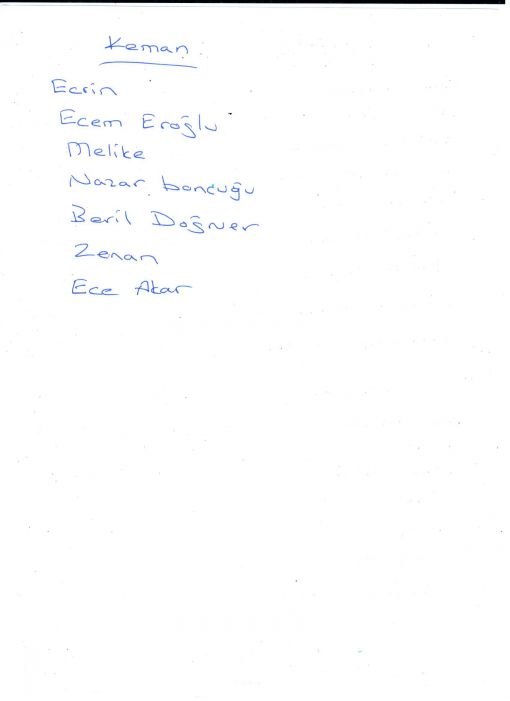 Keman
Ecrin
Ecem Eroğlu
Melike
Nazar boncuğu
Beril Doğner
Zenan
Ece Akar